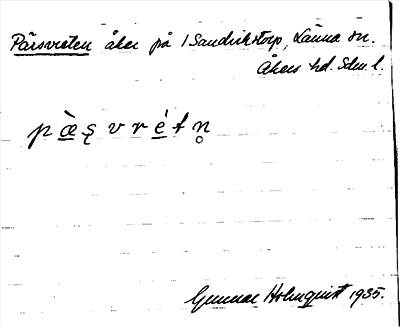 Pärsvreten åker på 1 Sandrikstorp, Länna sn.
Åkers hd. Sdm. l.
pæ̀ʂvrétn̥
Gunnar Holmquist 1935.